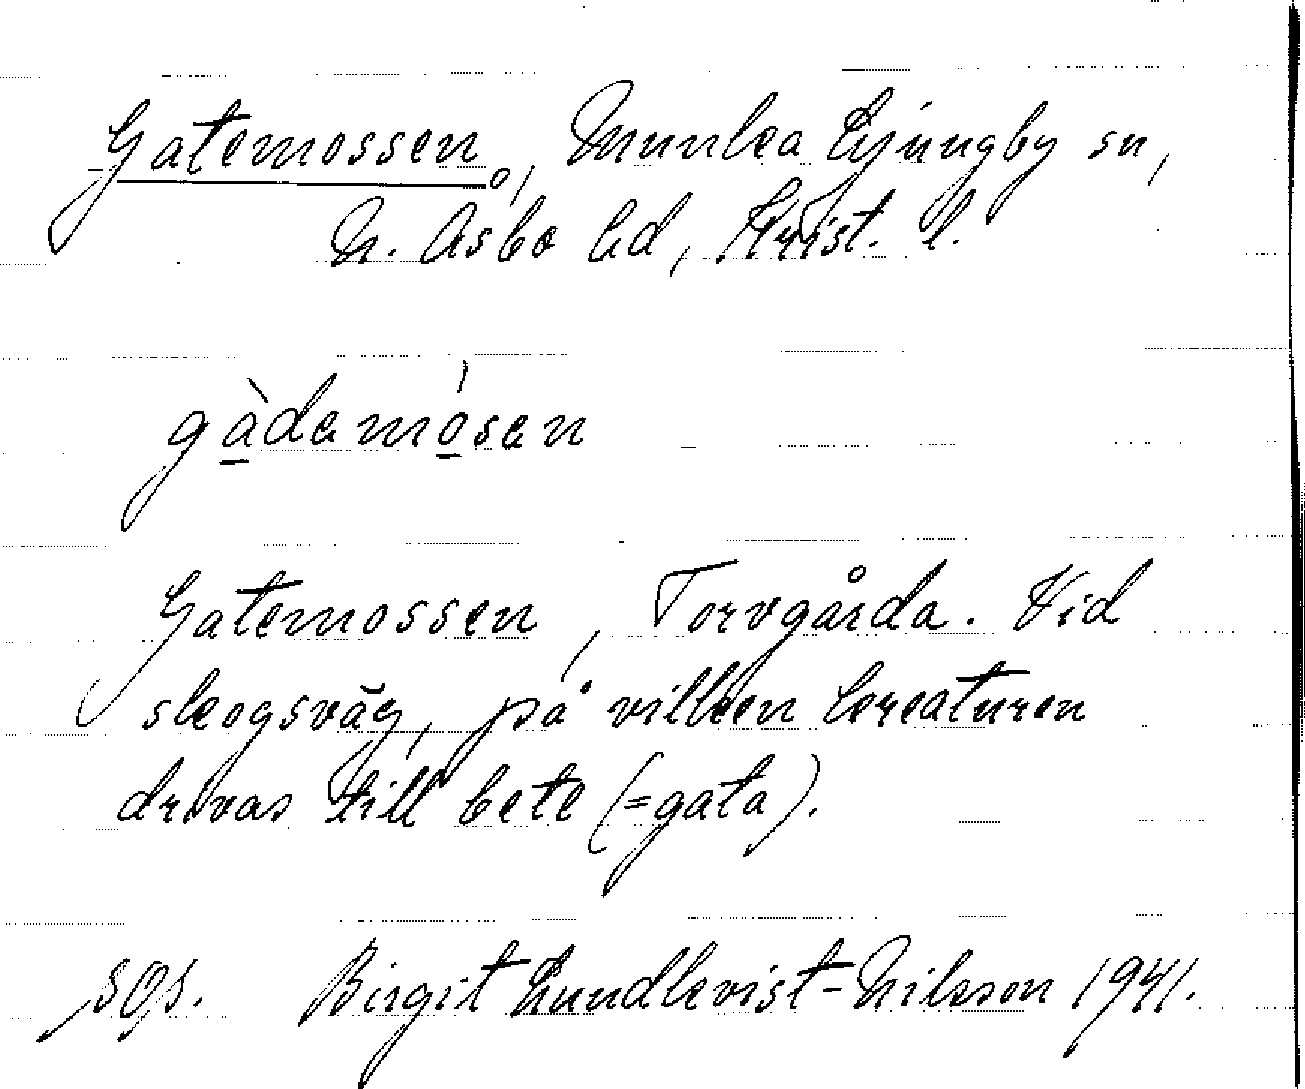 Gatemossen, Munka Ljungby sn,
N. Åsbo hd, Krist. l.
gàdamósen
Gatemossen, Torvgårda. Vid
skogsväg, på vilken kreaturen
drivas till bete (=gata).
SOS. Birgit Lundkvist-Nilsson 1941.